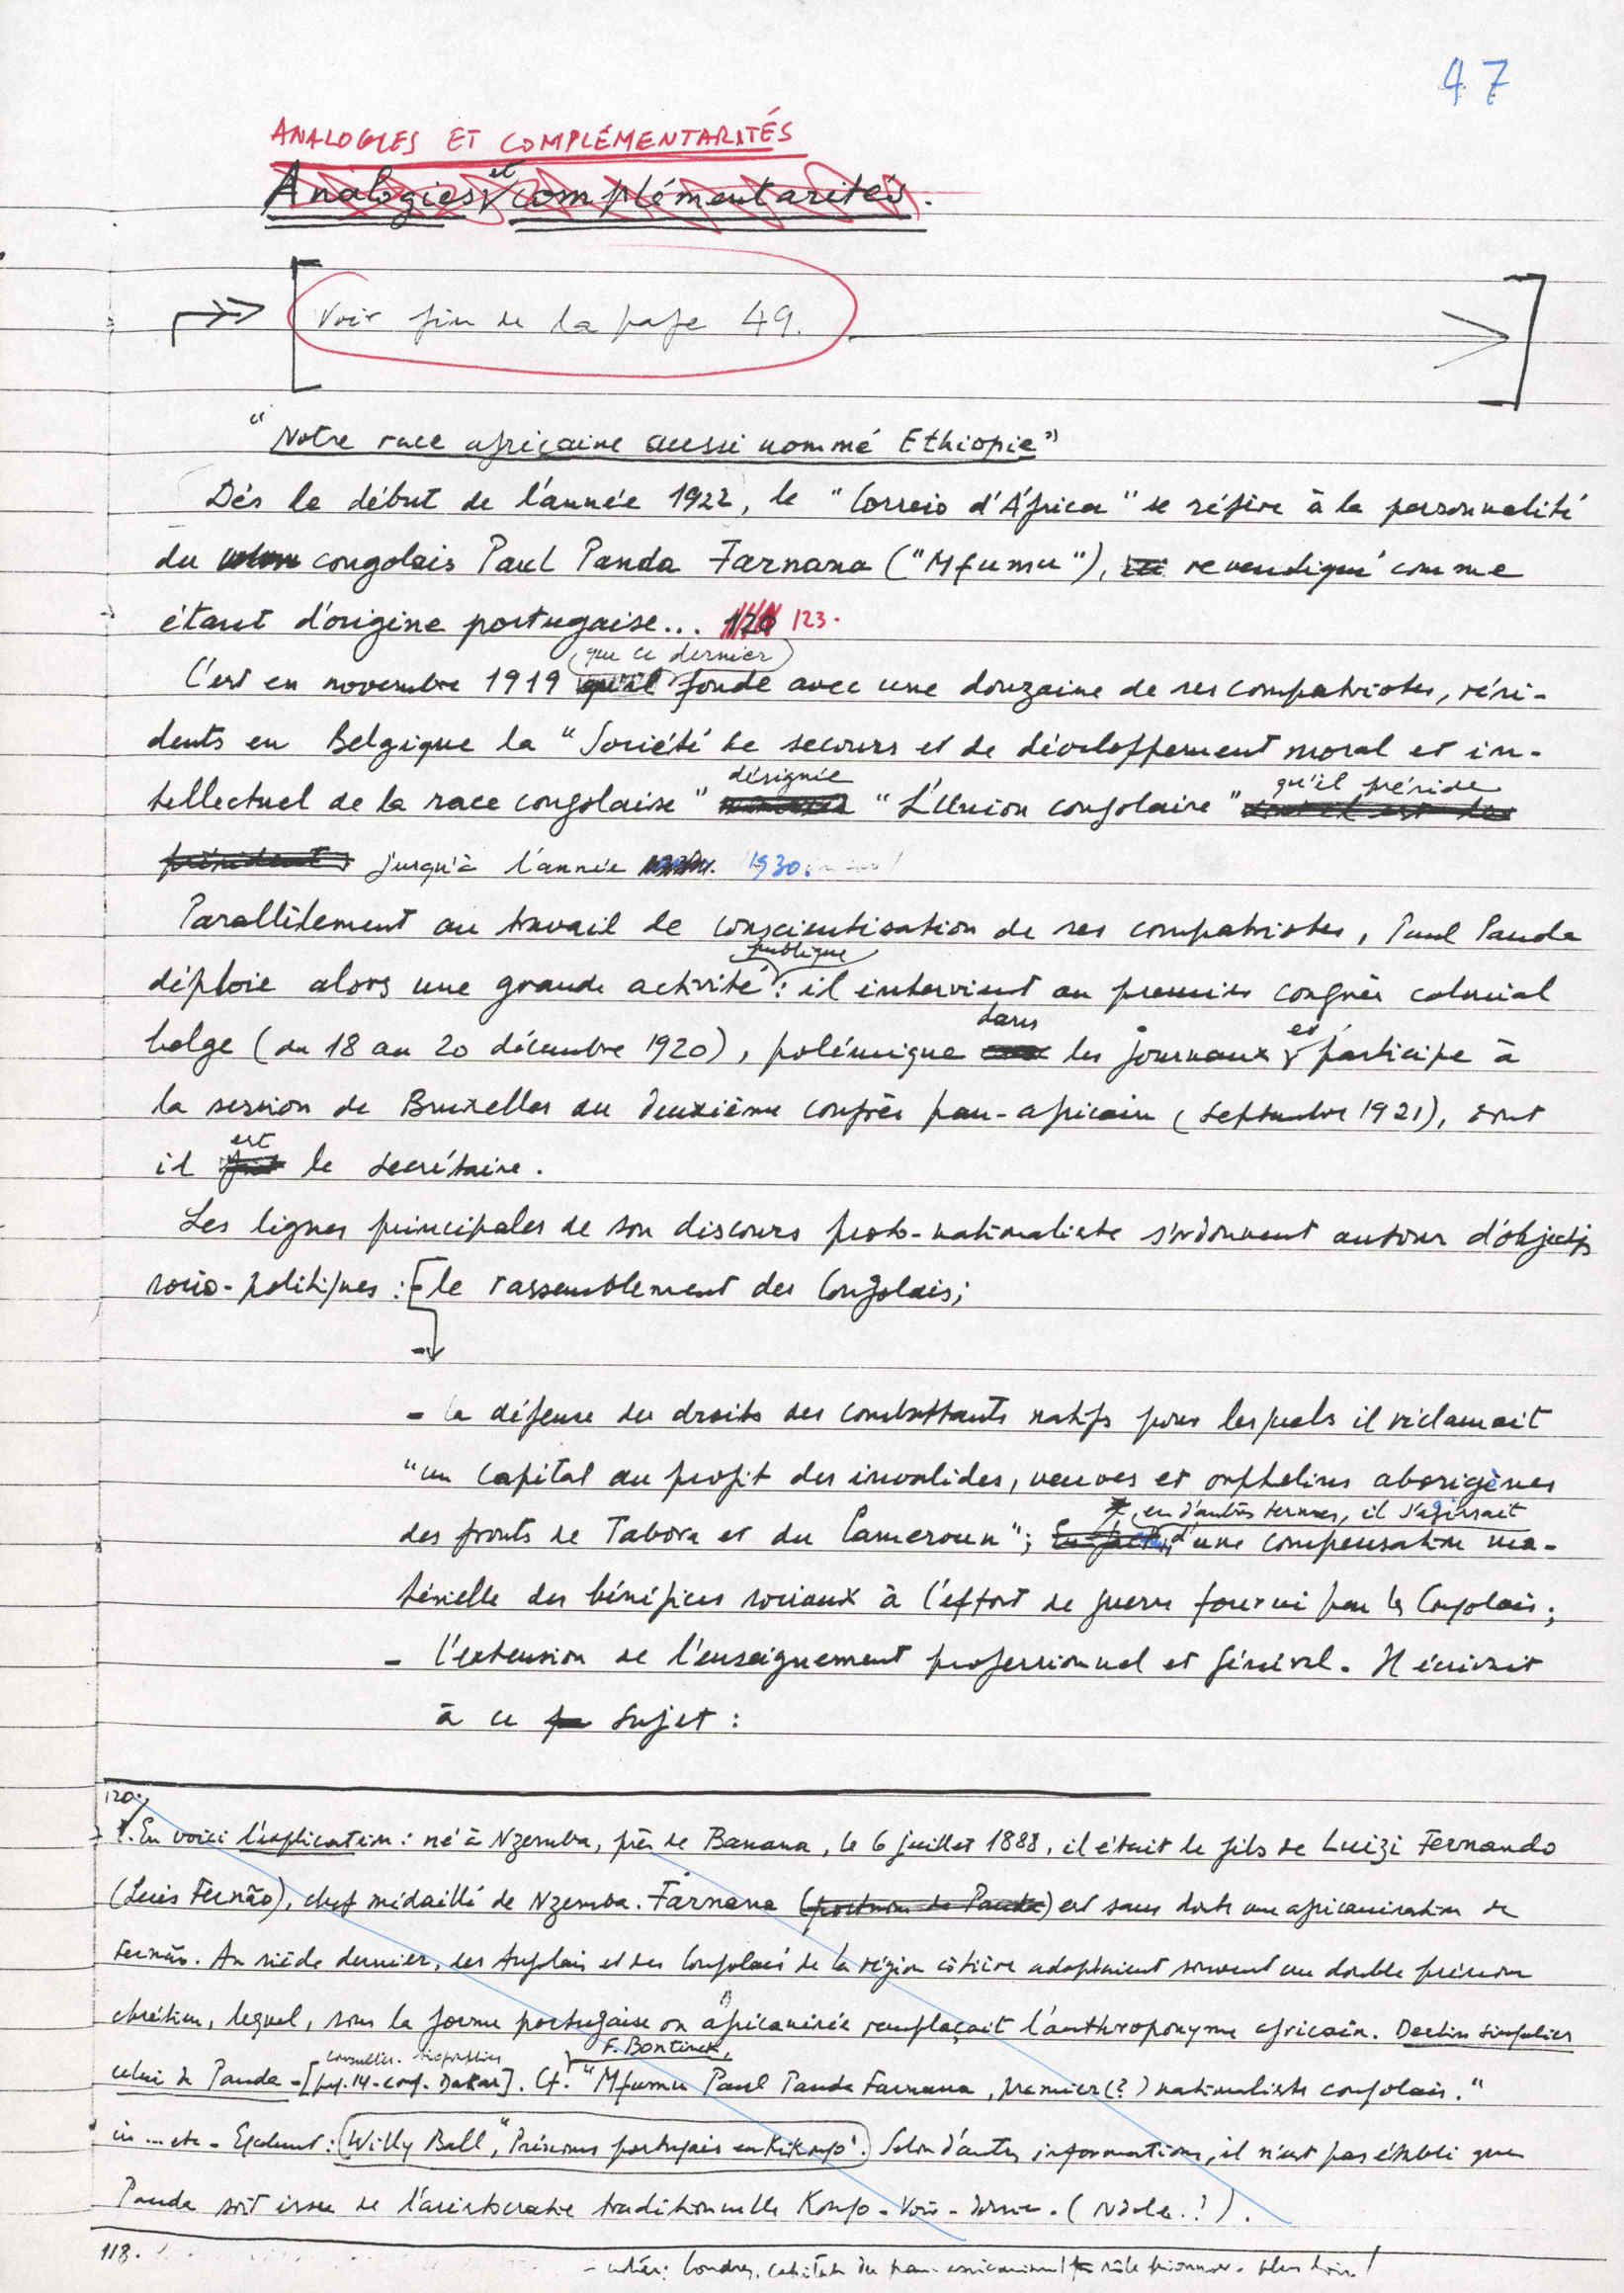 47
ANALOGIES ET COMPLÉMENTARITÉS
Analogies et complémentarités.
Voir fin de la page 49.
"Notre race africaine aussi nommé Ethiopie"
Dés le début de l'année 1922, le "Correio d'África" se réfère à la personnalité
du congolais Paul Panda Farnana ("Mfumu"), revendiqué comme
étant d'origine portugaise... 120 123.
que ce dernier
C'est en novembre 1919 qu'il fonde avec une douzaine de ses compatriotes, rési-
dents en Belgique la "Société de secours et de développement moral et in-
désignée qu'il préside
tellectuel de la race congolaise" "L'Union congolaise" dont il est le
président jusqu'à l'année 1930.
Parallèlement au travail de conscientisation de ses compatriotes, Paul Panda
publique
déploie alors une grande activité : il intervient au premier congrès colonial
dans et
belge (du 18 au 20 décembre 1920), polémique les journaux participe à
la session de Bruxelles du deuxième congrès pan-africain (septembre 1921), dont
est
il fut le secrétaire.
Les lignes principales de son discours proto-nationaliste s'ordonnent autour d'objectifs
socio-politiques : - le rassemblement des Congolais;
- la défense des droits des combattants natifs pour lesquels il réclamait
"un capital au profit des invalides, veuves et orphelins aborigènes
en d'autres termes, il s'agissait
des fronts de Tabora et du Cameroun"; d'une compensation ma-
térielle des bénéfices sociaux à l'effort de guerre fourni par les Congolais;
- l'extension de l'enseignement professionnel et général. Il écrivait
à ce sujet :
120.
En voici l'explication : né à Nzemba, près de Banana, le 6 juillet 1888, il était le fils de Luizi Fernando
(Luis Fernão), chef médaillé de Nzemba. Farnana (postnom de Panda) est sans doute une africanisation de
Fernão. Au siècle dernier, des Anglais et des Congolais de la région côtière adoptaient souvent un double prénom
chrétien, lequel, sous la forme portugaise ou africanisée remplaçait l'anthroponyme africain. Destin singulier
F. Bontinck,
celui de Panda - [ - conf. Dakar]. Cf. "Mfumu Paul Panda Farnana, premier (?) nationaliste congolais."
in ... etc - Egalement : Willy Ball, "Prénoms portugais en Kikongo". Selon d'autres informations, il n'est pas établi que
Panda soit issu de l'aristocratie traditionnelle Kongo -
118.